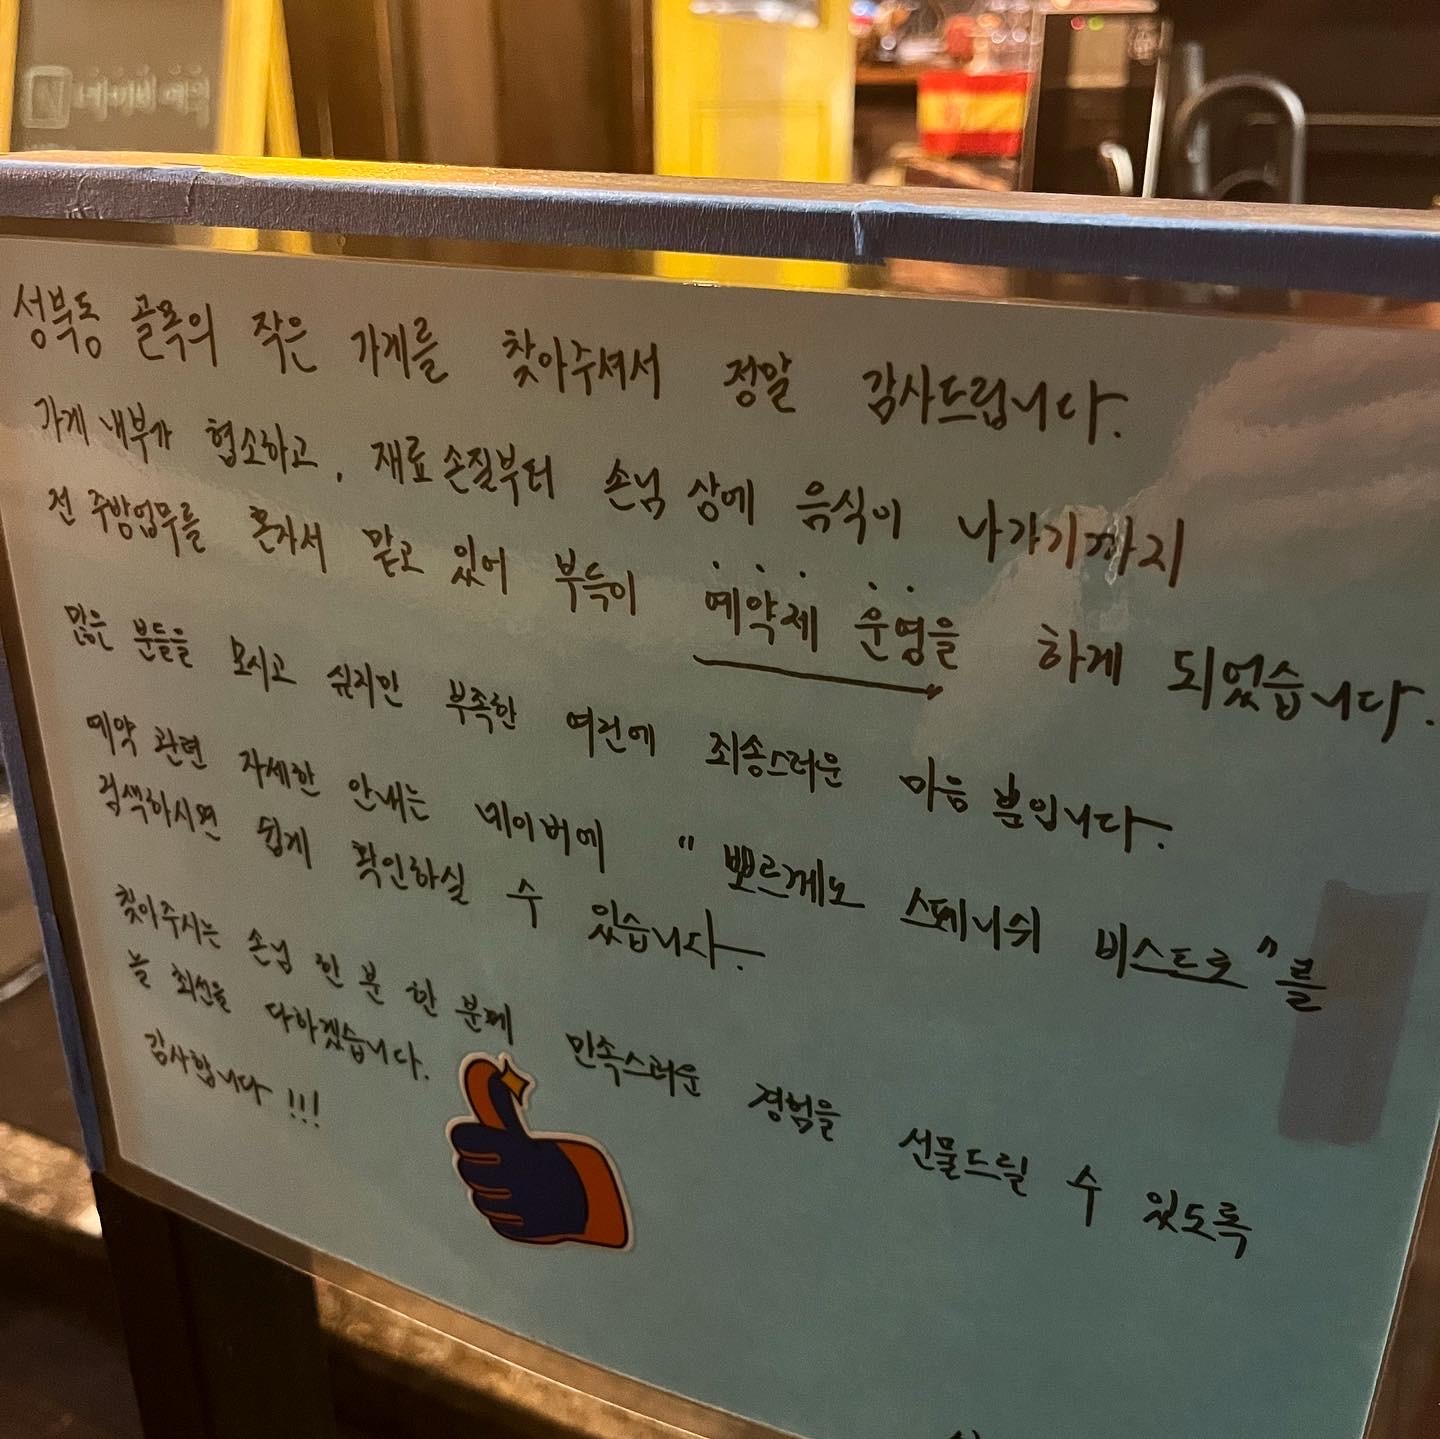 네이버 예약
성북동 골목의 작은 가게를 찾아주셔서 정말 감사드립니다.
가게 내부가 협소하고, 재료손질부터 손님 상에 음식이 나가기까지
전 주방업무를 혼자서 맡고 있어 부득이 예약제 운영을 하게 되었습니다.
많은 분들을 모시고 싶지만 부족한 여건에 죄송스러운 마음 뿐입니다.
예약 관련 자세한 안내는 네이버에 "뽀르게노 스페니쉬 비스트로"를
검색하시면 쉽게 확인하실 수 있습니다.
찾아주시는 손님 한 분 한 분께 만족스러운 경험을 선물드릴 수 있도록
늘 최선을 다하겠습니다.
감사합니다!!!